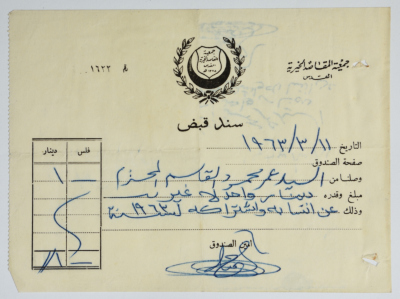 جمعية المقاصد الخيرية
القدس
١٦٢٢
سند قبض
التاريخ ١١/٣/١٩٦٣
صفحة الصندوق
وصلنا من السيد عمر محمود القاسم المحترم
مبلغ وقدره دينار واحد لا غير
وذلك عن انتسابه واشتراكه لسنة ١٩٦٣
فلس دينار
١ -
١ -
امين الصندوق